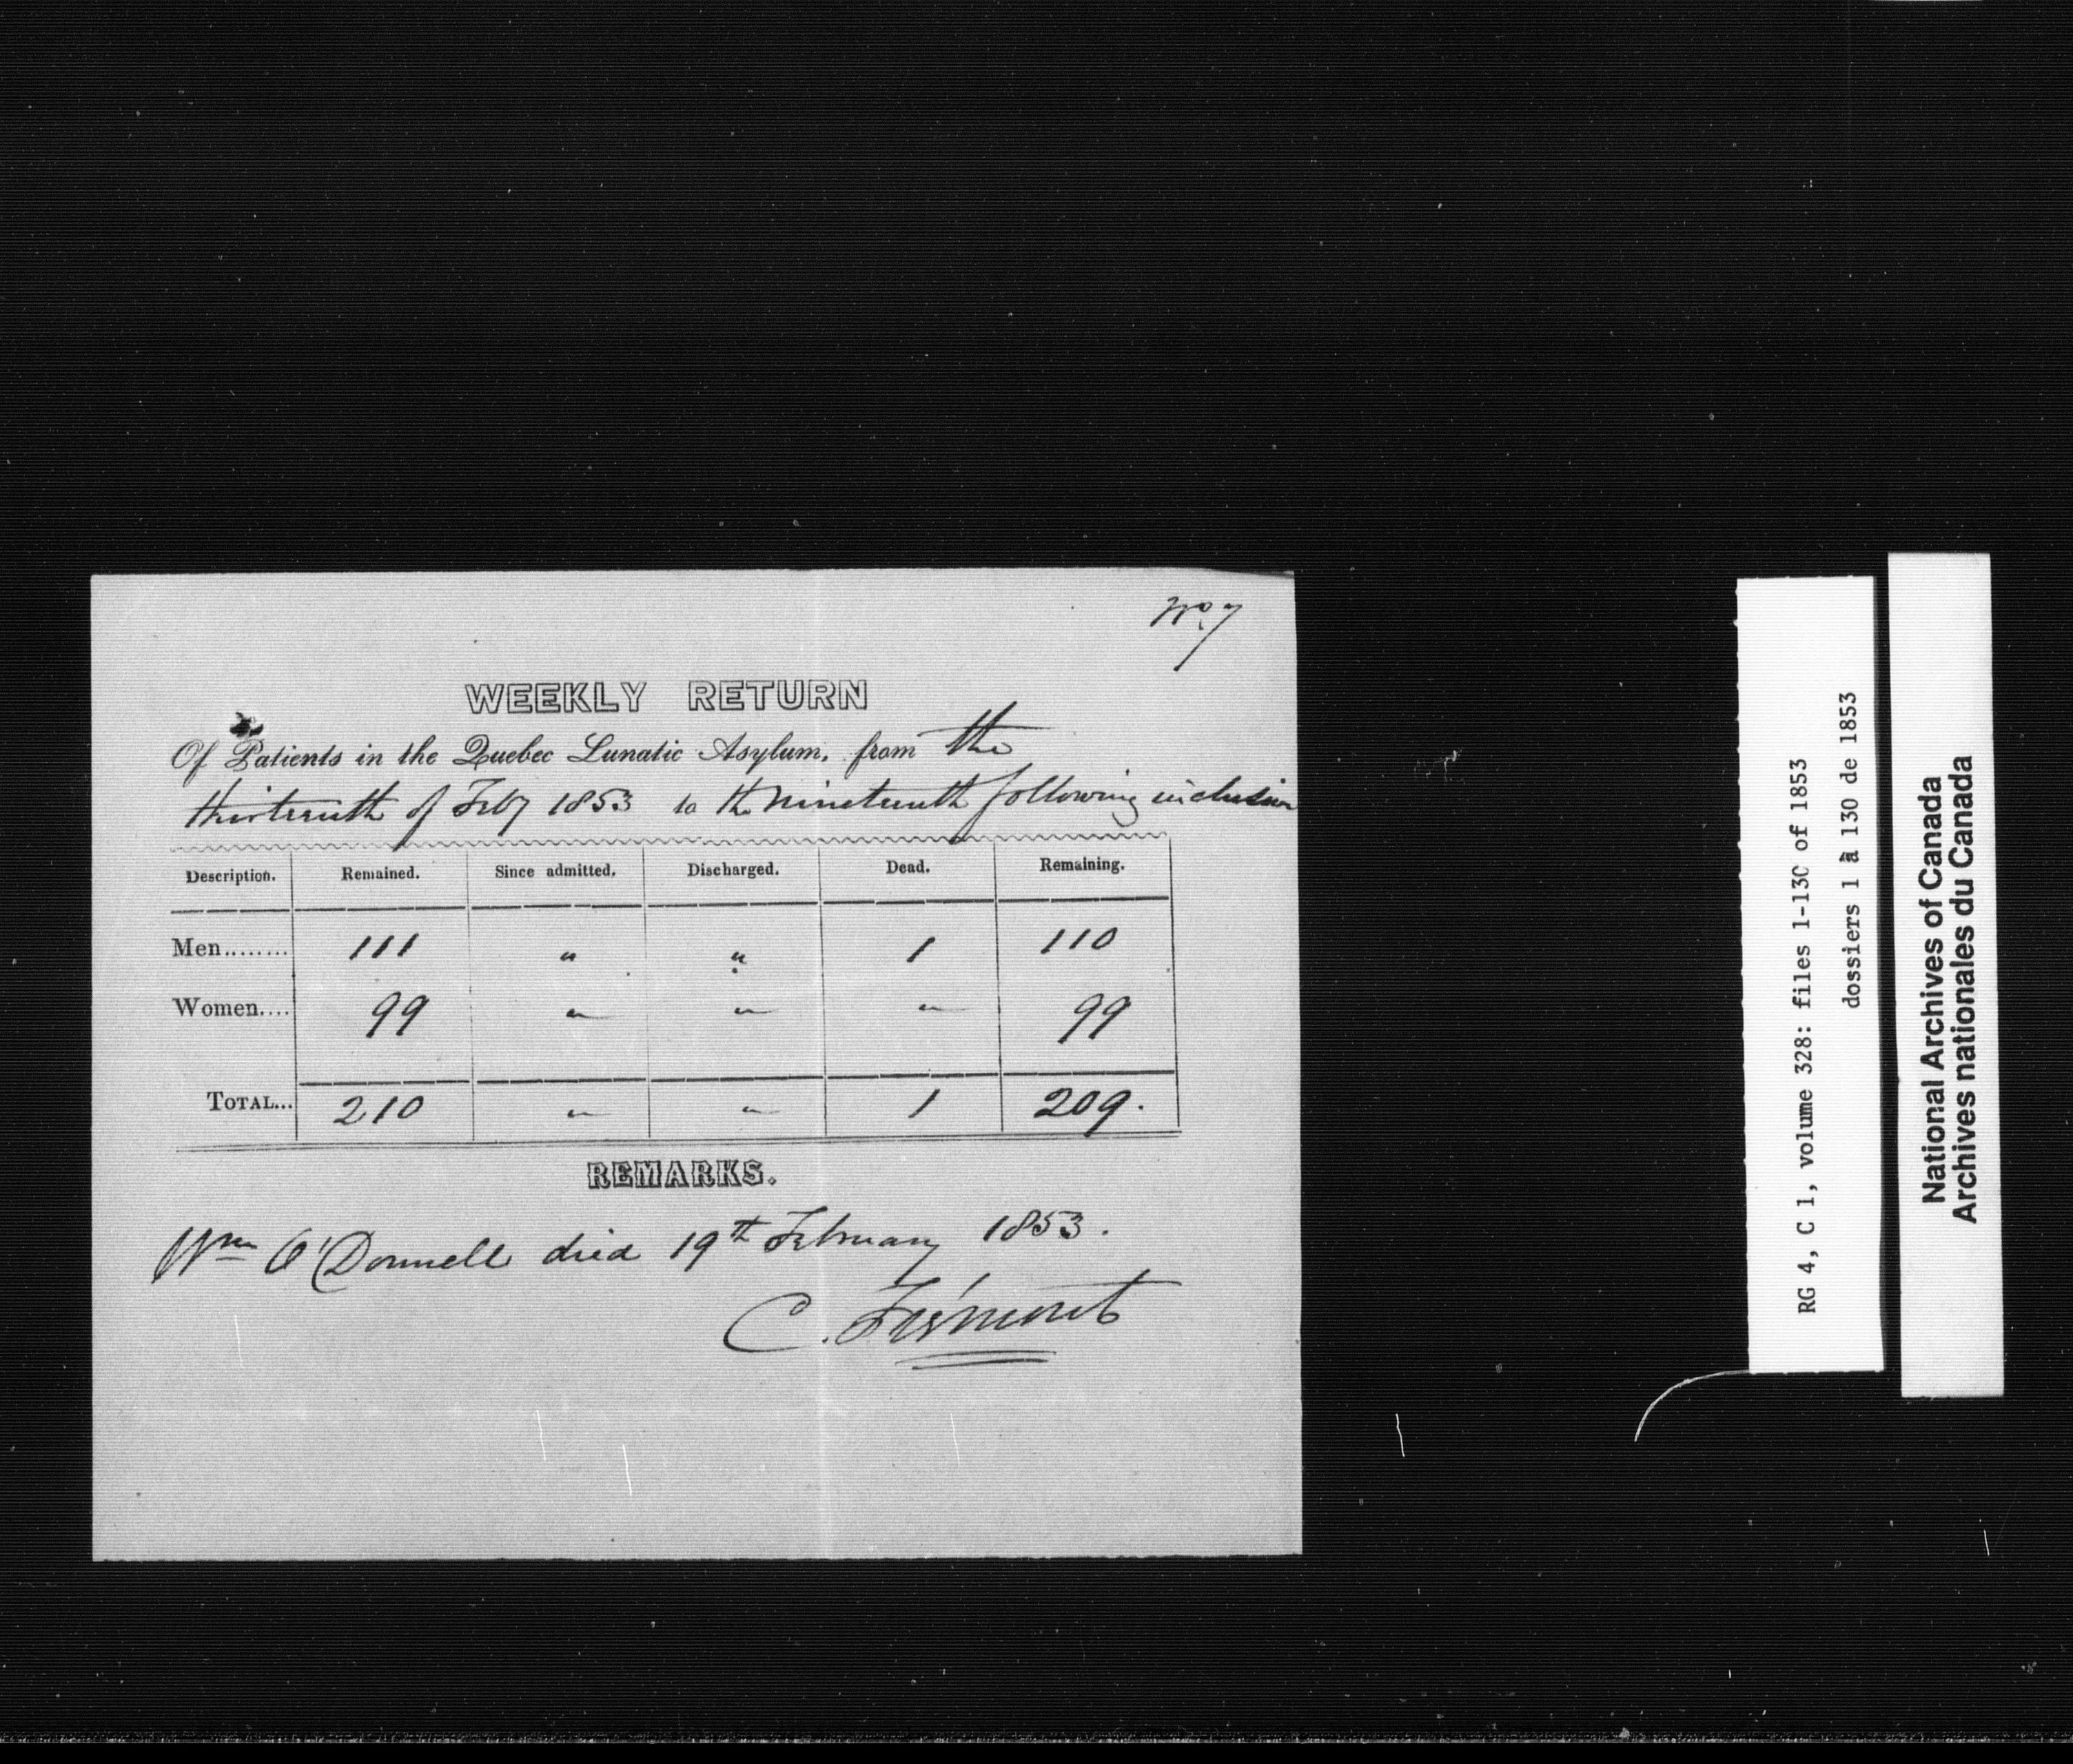 No. 7
WEEKLY RETURN
Of Patients in the Quebec Lunatic Asylum, from the
thirteenth of Feby 1853 to the nineteenth following inclusive
Description. Remained. Since admitted. Discharged. Dead. Remaining.
Men........ 111 " " 1 110
Women.... 99 " " " 99
TOTAL... 210 " " 1 209.
REMARKS.
Wm O'Donnell died 19th February 1853.
C. Frémont
RG 4, C 1, volume 328: files 1-130 of 1853
dossiers 1 à 130 de 1853
National Archives of Canada
Archives nationales du Canada